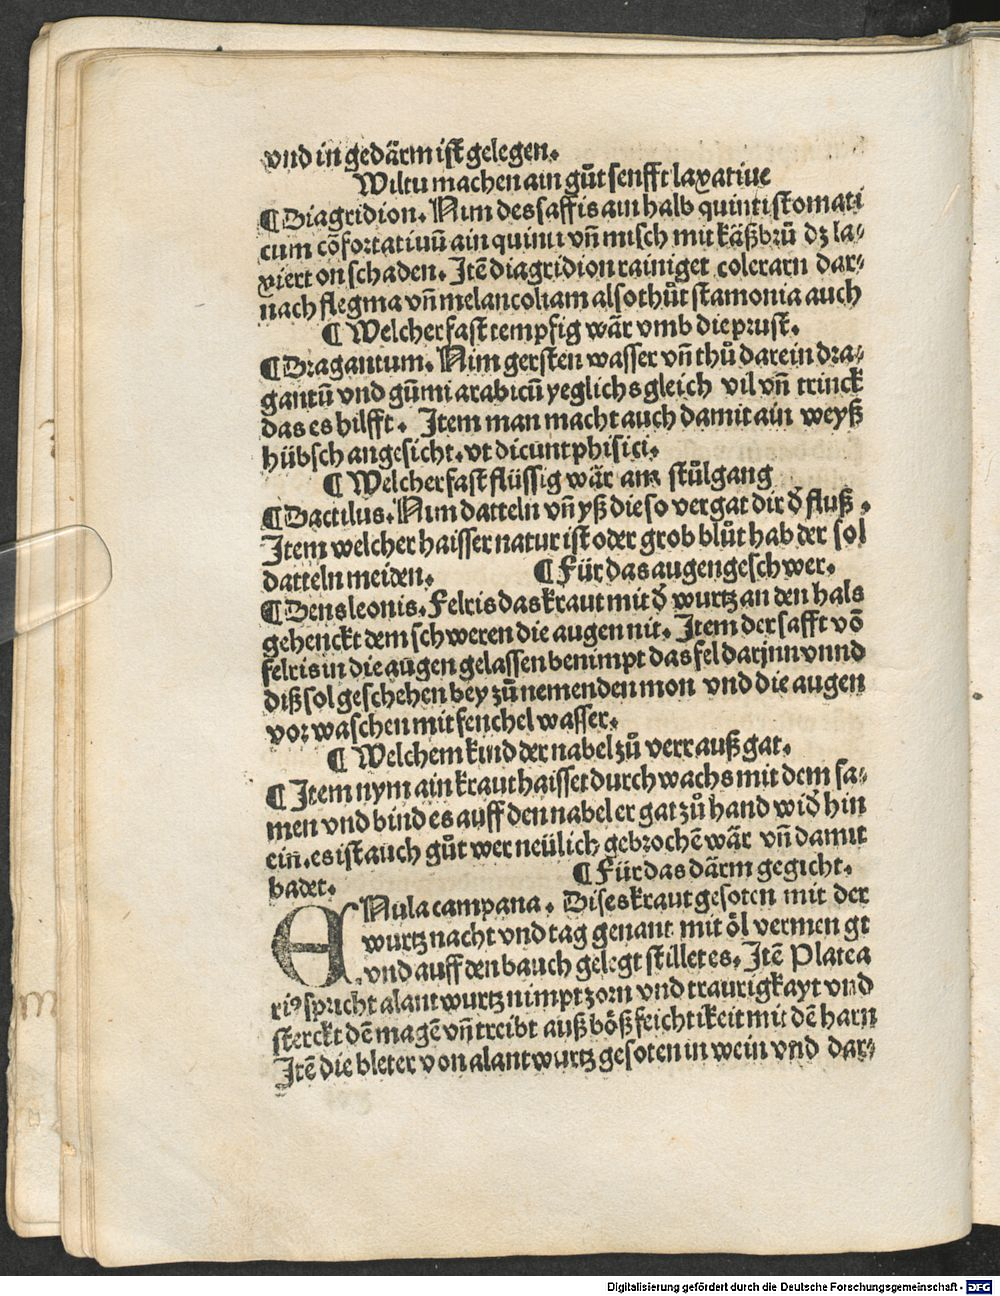 vnd in gedärm ist gelegen.
Wiltu machen ain gůt senfft laxatiue
¶ Diagridion. Nim des saffts ain halb quinti stomati
cum cōfortatiuū ain quinti vn̄ misch mit käßbrů dz la⸗
xiert on schaden. Itē diagridion rainiget colerarn dar⸗
nach flegma vn̄ melancoliam also thůt stamonia auch
¶ Welcher fast tempfig wär vmb die prust.
¶ Dragantum. Nim gersten wasser vn̄ thů darein dra⸗
gantū vnd gūmi arabicū yeglichs gleich vil vn̄ trinck
das es hilfft. Item man macht auch damit ain weyß
hübsch angesicht. vt dicunt phisici.
¶ Welcher fast flüssig wär am stůlgang
¶ Dactilus. Nim datteln vn̄ yß die so vergat dir d̄ fluß.
Item welcher haisser natur ist oder grob blůt hab der sol
datteln meiden. ¶ Für das augengeschwer.
¶ Dens leonis. Felris das kraut mit d̄ wurtz an den hals
gehenckt dem schweren die augen nit. Item der safft vō
felris in die augen gelassen benimpt das fel darjnn vnnd
diß sol geschehen bey zůnemenden mon vnd die augen
vor waschen mit fenchel wasser.
¶ Welchem kind der nabel zů verr auß gat.
¶ Item nym ain kraut haisset durchwachs mit dem sa⸗
men vnd bind es auff den nabel er gat zů hand wid̄ hin
ein. es ist auch gůt wer neülich gebrochē wär vn̄ damit
badet. ¶ Für das därm gegicht.
ENula campana. Dises kraut gesoten mit der
wurtz nacht vnd tag genant mit öl vermengt
vnd auff den bauch gelegt stillet es. Itē Platea
riꝰ spricht alantwurtz nimpt zorn vnd traurigkayt vnd
sterckt dē magē vn̄ treibt auß böß feichtikeit mit dē harn
Itē die bleter von alantwurtz gesoten in wein vnd dar⸗
Digitalisierung gefördert durch die Deutsche Forschungsgemeinschaft - DFG